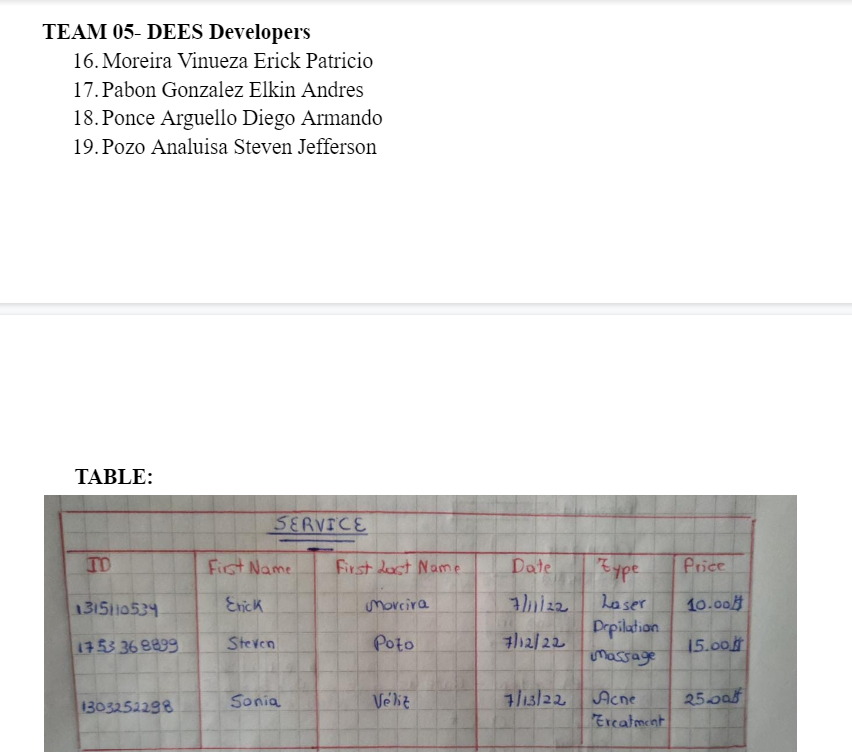 TEAM 05- DEES Developers
16. Moreira Vinueza Erick Patricio
17. Pabon Gonzalez Elkin Andres
18. Ponce Arguello Diego Armando
19. Pozo Analuisa Steven Jefferson
TABLE:
SERVICE
ID First Name First Last Name Date Type Price
1315110534 Erick Moreira 7/11/22 Laser Depilation 10.00$
1753368899 Steven Pozo 7/12/22 Massage 15.00$
1303252298 Sonia Véliz 7/13/22 Acne Treatment 25.00$